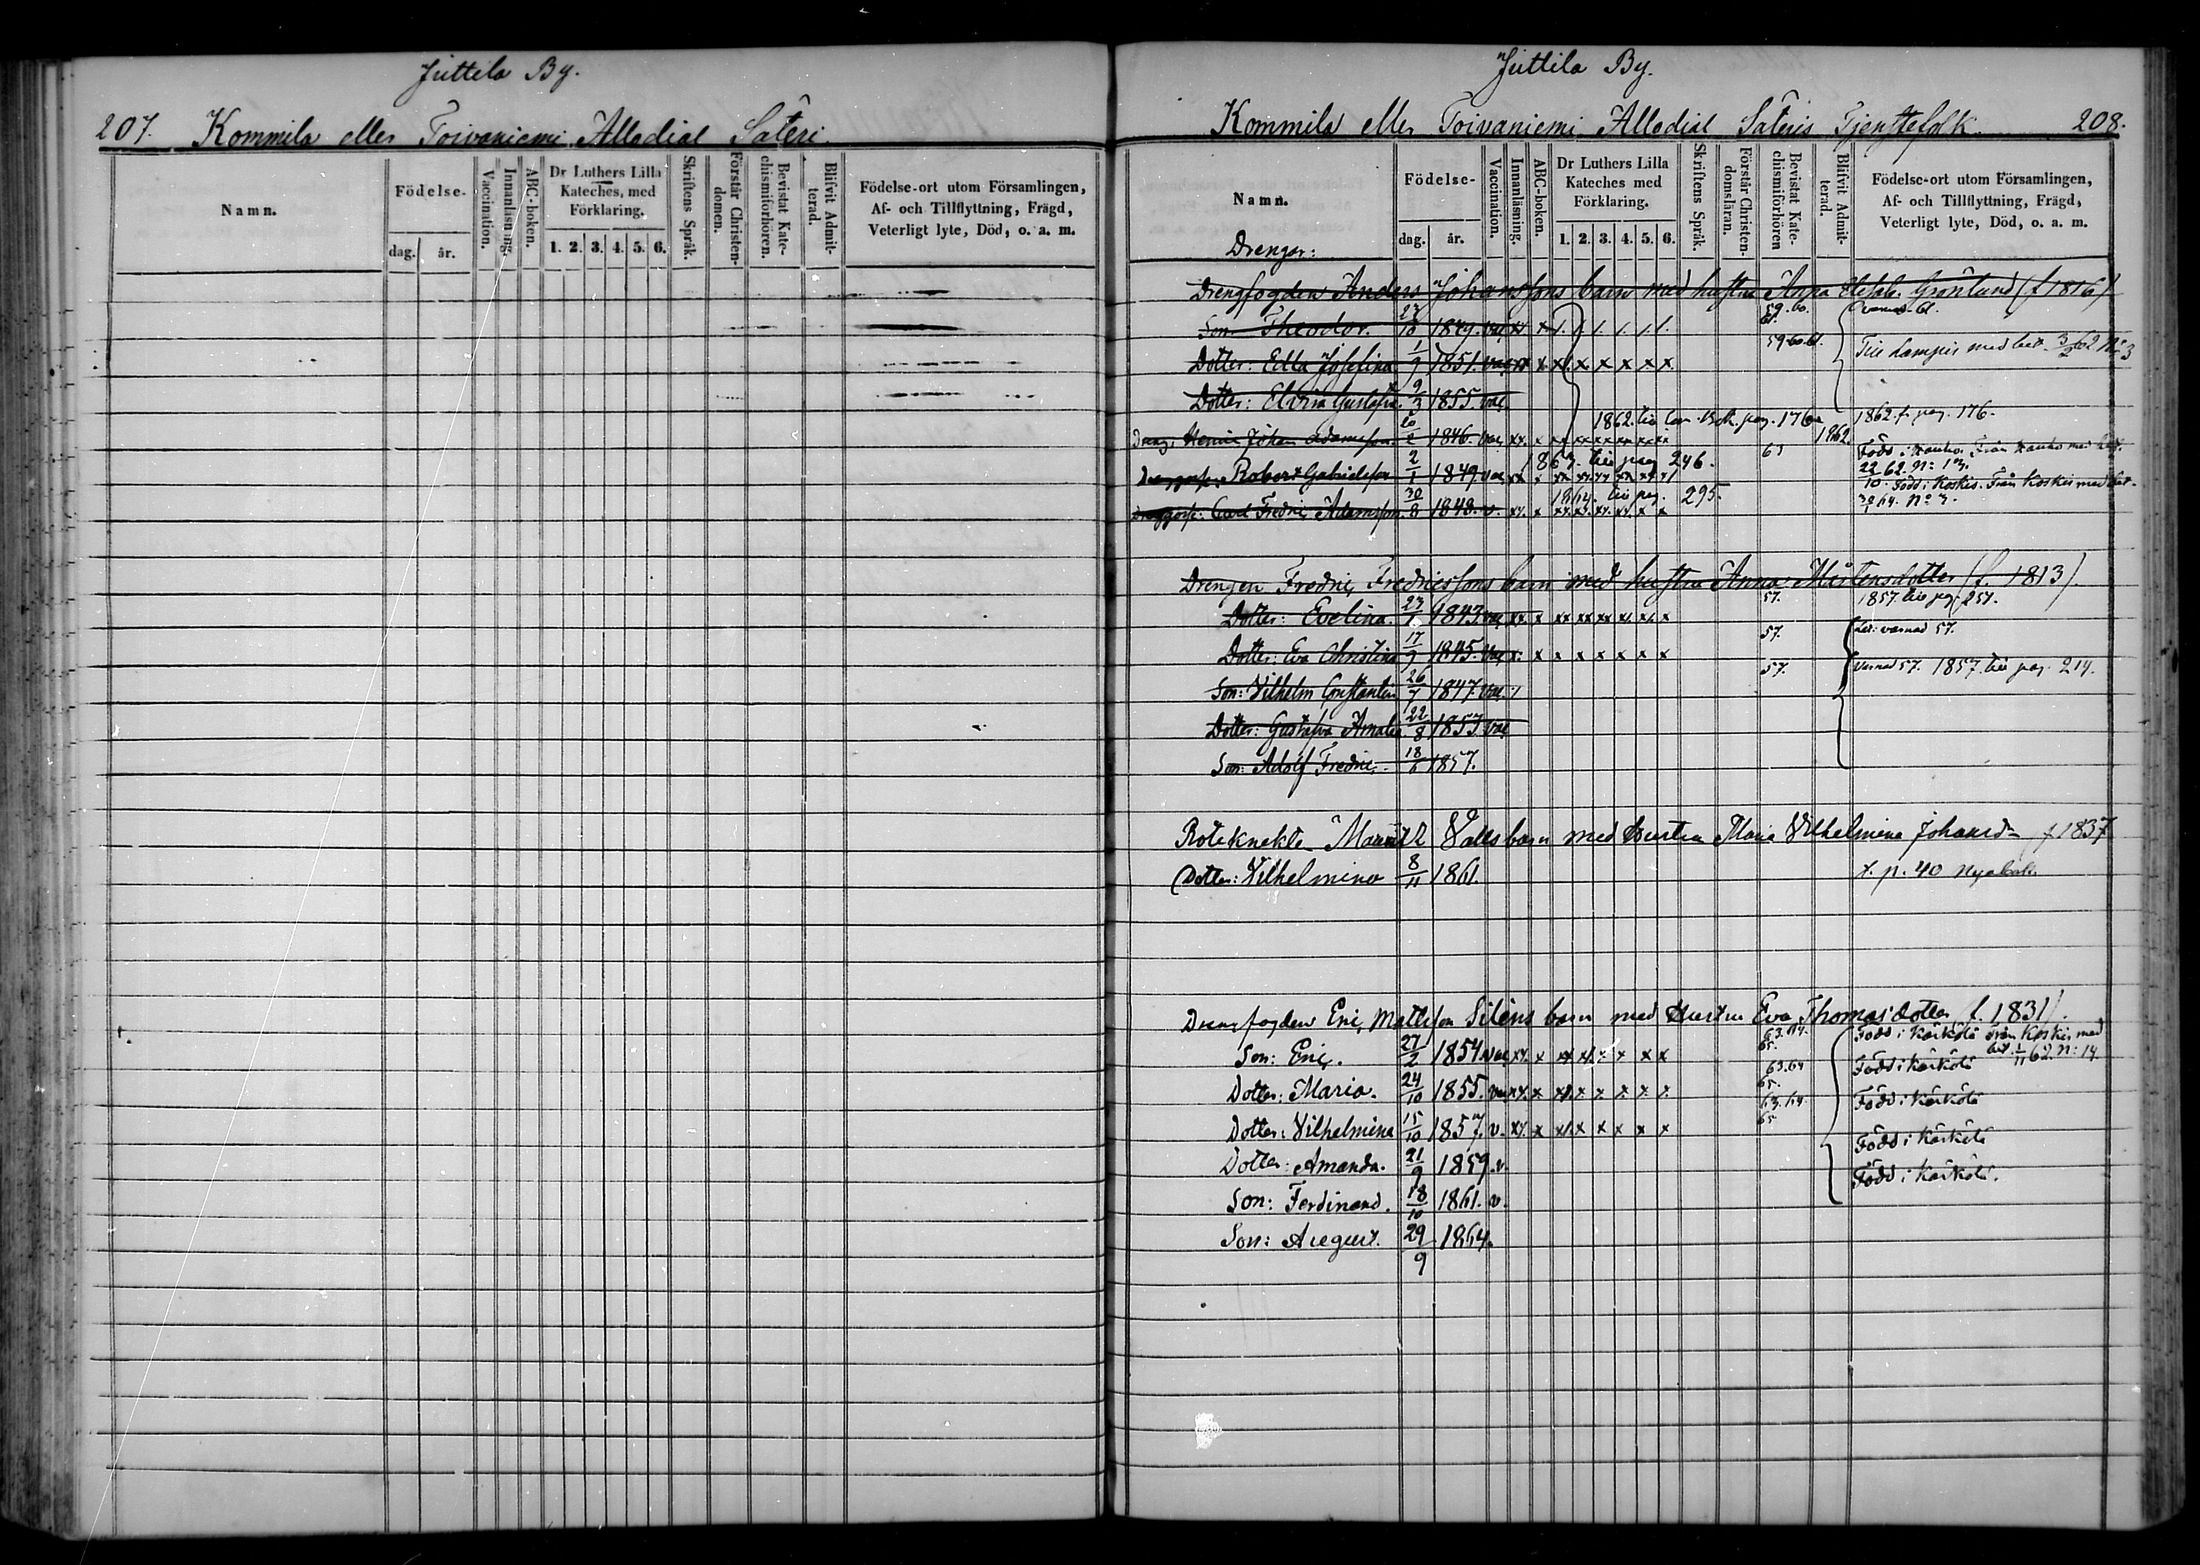 Juttila By.
207. Kommila eller Toivaniemi Allodial Säteri.
Namn.
Födelse-
dag. år.
Vaccination.
Innanläsning.
ABC-boken.
Dr Luthers Lilla
Kateches, med
Förklaring.
1. 2. 3. 4. 5. 6.
Skriftens Språk.
Förstår Christen-
domen.
Bevistat Kate-
chismiförhören.
Blifvit Admit-
terad.
Födelse-ort utom Församlingen,
Af- och Tillflyttning, Frägd,
Veterligt lyte, Död, o. a. m.
Juttila By.
Kommila eller Toivaniemi Allodial Säteris Tjenstefolk. 208.
Namn.
Drengar:
Födelse-
dag. år.
Vaccination.
Innanläsning.
ABC-boken.
Dr Luthers Lilla
Kateches med
Förklaring.
1. 2. 3. 4. 5. 6.
Skriftens Språk.
Förstår Christen-
domsläran.
Bevistat Kate-
chismiförhören
Blifvit Admit-
terad.
Födelse-ort utom Församlingen,
Af- och Tillflyttning, Frägd,
Veterligt lyte, Död, o. a. m.
Drengfogden Anders Johanssons barn med hustru Anna Grönlund (f 1816)
Son: Theodor. 27/10 1849. vac 59. 60. 61.
Dotter: Edla Josefina 1/9 1851. vac 59. 60. 61. Till Lampis med bet. 3/2 62 No 3
Dotter: Elvira Gustafva 9/3 1855. vac.
1862. pag. 176 1862. f. pag. 176.
Dreng: Henric Johan Adamsson. 20/2 1846. vac 1862.
1863. till pag 246. 63 Född i Hauho. Från Hauho med bet.
Robert Gabrielsson 2/1 1849 vac 22/10 62. N: 13.
1864. till pag. 295. Född i Koskis. Från Koskis med bet.
Carl Fredric Adamsson. 30/8 1848. v. 64. No 3.
Drengen Fredric Fredricssons barn med hustru Anna Mårtensdotter (f. 1813).
Dotter: Evelina. 23/1 1843 vac 57. 1857 till pag. 257.
Dotter: Eva Christina 17/9 1845. vac 57. 57.
Son: Vilhelm Constantin 26/7 1847 vac 57. 57. 1857. till pag. 214.
Dotter: Gustafva Amalia 22/8 1853 vac
Son: Adolf Fredric. 18/6 1857.
Roteknekten Valls barn med Hustru Maria Vilhelmina Johansd. f 1837
Dotter: Vilhelmina 8/11 1861. p. 40 Nya bok.
Drengfogden Eric Mattsson Siléns barn med Hustru Eva Thomasdotter f. 1831).
Son: Eric. 27/2 1854. vac 63. 64. 65. Född i Kärkölä från Koskis med
bet. 1/11 62. N: 14.
Dotter: Maria. 24/10 1855. vac 63. 64 65. Född i Kärkölä
Dotter: Vilhelmina 15/10 1857. v. 63. 64. 65 Född i Kärkölä
Dotter: Amanda. 21/9 1859. v. Född i Kärkölä
Son: Ferdinand. 18/10 1861. v. Född i Kärkölä.
Son: August. 29/9 1864.